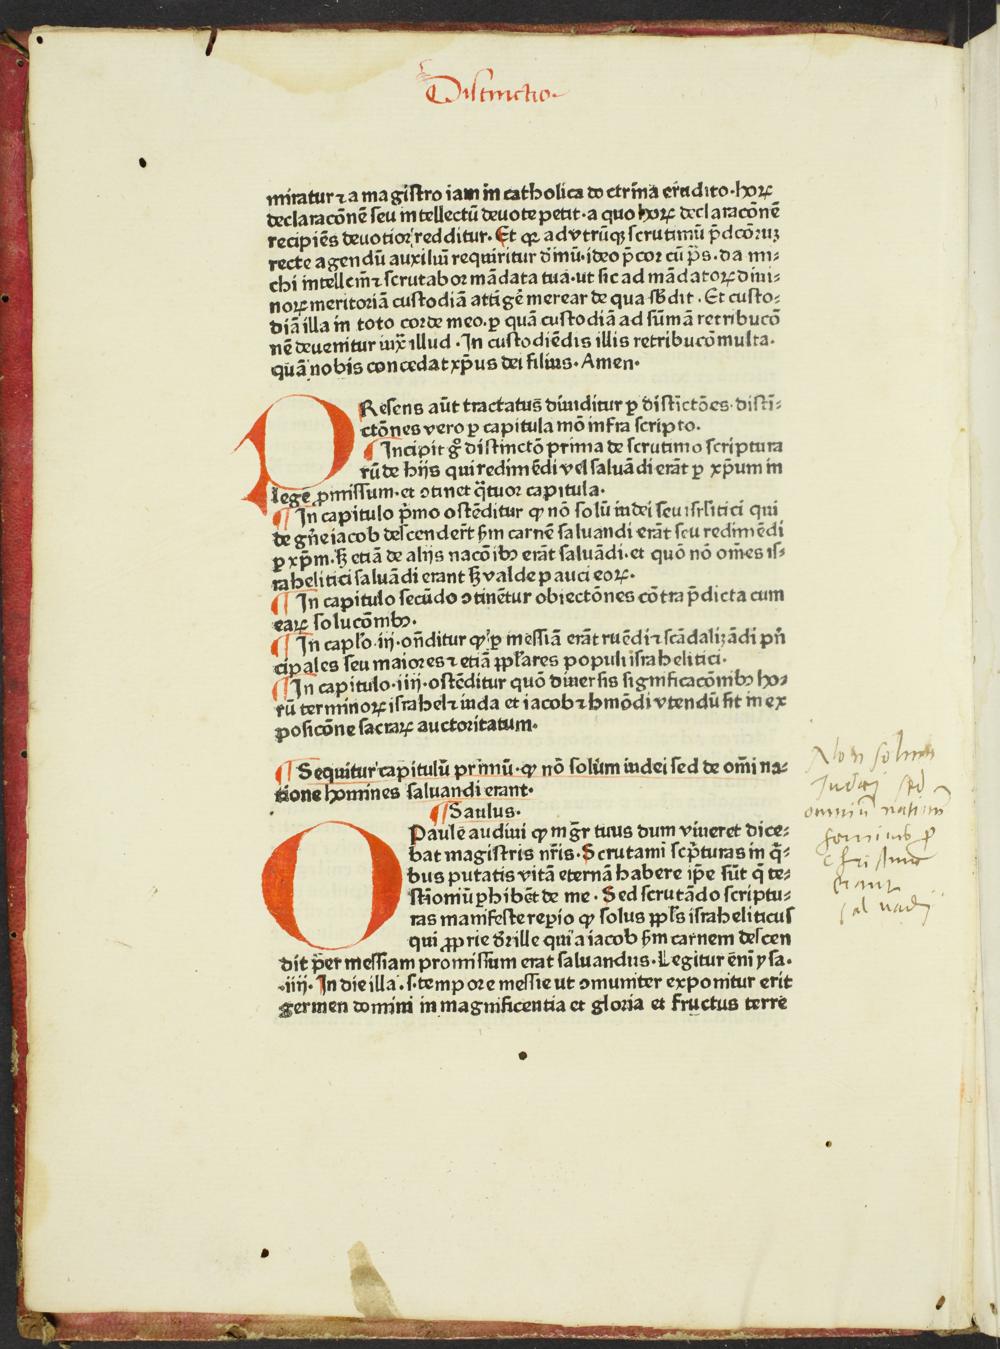 Distinctio
miratur ⁊ a magistro iam in catholica doctrina erudito·hoꝝ
declaracōnē seu intellectū deuote petit·a quo hoꝝ declaracōnē
recipiēs deuotior redditur·Et qꝛ ad vtrūqꝫ scrutiniū p̄dcōruꝫ
recte agendū auxiliū requiritur diuinū·ideo p̄cor cū p̄s·da mi⸗
chi intellcm̄ ⁊ scrutabor mādata tua·ut sic ad mādatoꝝ diui⸗
noꝝ meritoriā custodiā attīgē merear de qua sb̄dit·Et custo⸗
diā illa in toto corde meo·ꝑ quā custodiā ad sūmā retribucō
nē deuenitur iux̄ illud·In custodiēdis illis retribucō multa·
quā nobis concedat xp̄us dei filius·Amen·
PResens aūt tractatus diuiditur ꝑ distictōes·distī⸗
ctōnes vero ꝑ capitula mō infra scripto·
¶Incipit gͦ distinctō prima de scrutinio scriptura
rū de hijs qui redimēdi vel saluādi erāt ꝑ xp̄um in
lege ꝓmissum·et ↄtinet q̄tuor capitula·
¶In capitulo p̄mo ostēditur ꝙ nō solū iudei seu isrlitici qui
de gn̄e iacob descendert̄ ẜm carnē saluandi erāt seu redimēdi
ꝑ xp̄m·ꜩ etiā de alijs nacōibꝫ erāt saluādi·et quō nō om̄es is⸗
rahelitici saluādi erant ꜩ valde pauci eoꝝ·
¶In capitulo secūdo ↄtinētur obiectōnes cōtra p̄dicta cum
eaꝝ solucōnibꝫ·
¶In caplo·iij·on̄ditur ꝙ ꝑ messiā erāt ruēdi ⁊ scādalizādi pn̄
cipales seu maiores ⁊ etiā ꝓpl̄ares populi israhelitici·
¶In capitulo·iiij·ostēditur quō diuersis significacōnibꝫ ho⸗
rū terminoꝝ israhel ⁊ iuda et iacob ⁊ hmōdi vtendū sit in ex
posicōne sacraꝝ auctoritatum·
¶Sequitur capitulū primū·ꝙ nō solum iudei sed de om̄i na⸗
tione homines saluandi erant·
¶Saulus·
O Paule audiui ꝙ mgr̄ tuus dum viueret dice⸗
bat magistris nr̄is·Scrutami scp̄turas in q̄⸗
bus putatis vitā eternā habere ip̄e sūt q̄ te⸗
stīoniū ꝑhibēt de me·Sed scrutādo scriptu⸗
ras manifeste reperio ꝙ solus ppl̄s israheliticus
qui ꝓprie dr̄ ille qui a iacob ẜm carnem descen
dit per messiam promissum erat saluandus·Legitur enī ysa·
·iiij·In die illa·s·tempore messie ut ↄmuniter exponitur erit
germen domini in magnificentia et gloria et fructus terre
Non solum
Judei sed
omniū nationū
homines ꝑ
christum
erant
saluadj